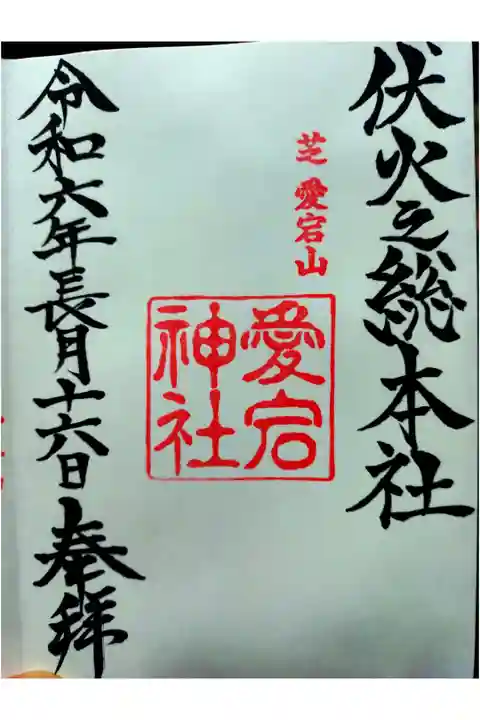 伏火之総本社
芝愛宕山
愛宕
神社
令和六年長月十六日
奉拝